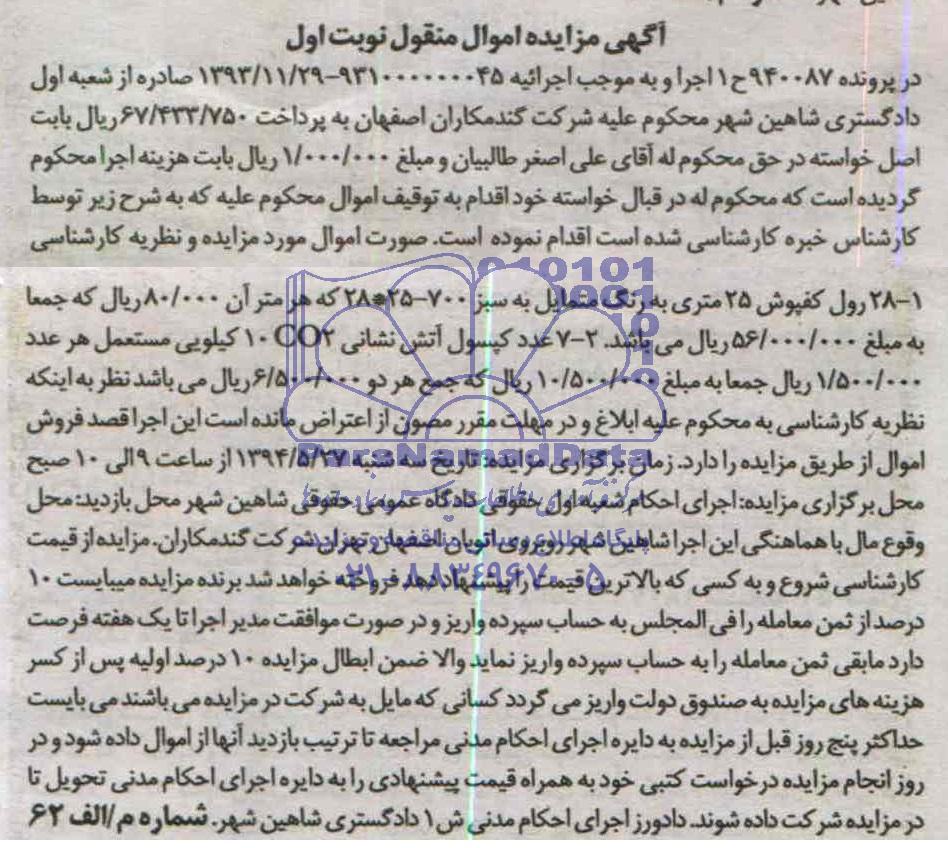 آگهی مزایده اموال منقول نوبت اول
در پرونده ۹۴۰۰۸۷ح۱ اجرا و به موجب اجرائیه ۹۳۱۰۰۰۰۰۰۰۰۴۵-۱۳۹۳/۱۱/۲۹ صادره از شعبه اول
دادگستری شاهین شهر محکوم علیه شرکت گندمکاران اصفهان به پرداخت ۶۷/۴۳۳/۷۵۰ریال بابت
اصل خواسته در حق محکوم له آقای علی اصغر طالبیان و مبلغ ۱/۰۰۰/۰۰۰ ریال بابت هزینه اجرا محکوم
گردیده است که محکوم له در قبال خواسته خود اقدام به توقیف اموال محکوم علیه که به شرح زیر توسط
کارشناس خبره کارشناسی شده است اقدام نموده است. صورت اموال مورد مزایده و نظریه کارشناسی
۱-۲۸ رول کفپوش ۲۵ متری به رنگ متمایل به سبز ۷۰۰-۲۵*۲۸ که هر متر آن ۸۰/۰۰۰ ریال که جمعا
به مبلغ ۵۶/۰۰۰/۰۰۰ ریال می باشد. ۲-۷ عدد کپسول آتش نشانی CO۲ ۱۰ کیلویی مستعمل هر عدد
۱/۵۰۰/۰۰۰ ریال جمعا به مبلغ ۱۰/۵۰۰/۰۰۰ ریال که جمع هر دو ۶/۵۰۰/۰۰۰ریال می باشد نظر به اینکه
نظریه کارشناسی به محکوم علیه ابلاغ و در مهلت مقرر مصون از اعتراض مانده است این اجرا قصد فروش
اموال از طریق مزایده را دارد. زمان برگزاری مزایده: تاریخ سه شنبه ۱۳۹۴/۵/۲۷ از ساعت ۹الی ۱۰ صبح
محل برگزاری مزایده: اجرای احکام شعبه اول حقوقی دادگاه عمومی حقوقی شاهین شهر محل بازدید: محل
وقوع مال با هماهنگی این اجرا شاهین شهر روبروی اتوبان اصفهان تهران شرکت گندمکاران. مزایده از قیمت
کارشناسی شروع و به کسی که بالاترین قیمت را پیشنهاد دهد فروخته خواهد شد برنده مزایده میبایست ۱۰
درصد از ثمن معامله را فی المجلس به حساب سپرده واریز و در صورت موافقت مدیر اجرا تا یک هفته فرصت
دارد مابقی ثمن معامله را به حساب سپرده واریز نماید والا ضمن ابطال مزایده ۱۰ درصد اولیه پس از کسر
هزینه های مزایده به صندوق دولت واریز می گردد کسانی که مایل به شرکت در مزایده می باشند می بایست
حداکثر پنج روز قبل از مزایده به دایره اجرای احکام مدنی مراجعه تا ترتیب بازدید آنها از اموال داده شود و در
روز انجام مزایده درخواست کتبی خود به همراه قیمت پیشنهادی را به دایره اجرای احکام مدنی تحویل تا
در مزایده شرکت داده شوند. دادورز اجرای احکام مدنی ش۱ دادگستری شاهین شهر. شماره م/الف ۶۲
ParsNamadData
۰۲۱-۸۸۳۴۹۶۷۰-۵